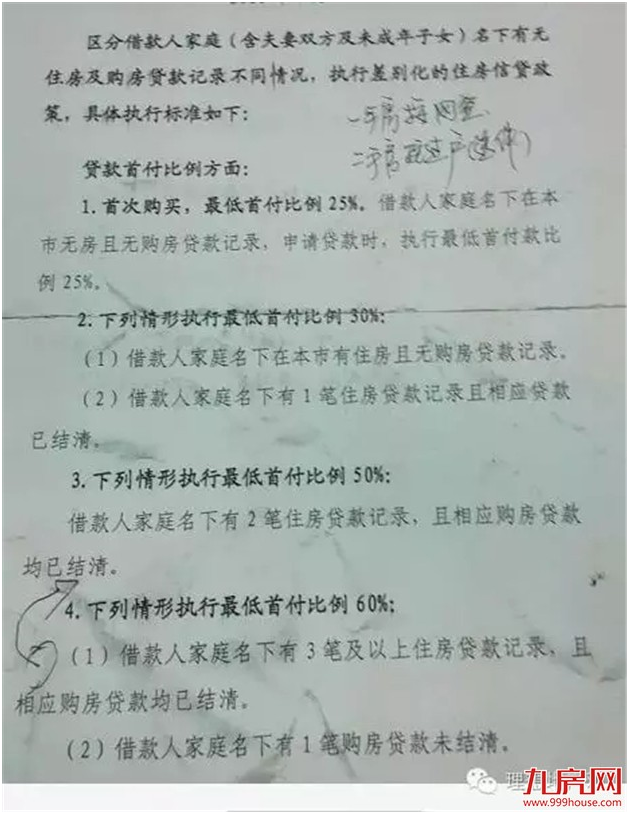 区分借款人家庭（含夫妻双方及未成年子女）名下有无
住房及购房贷款记录不同情况，执行差别化的住房信贷政
策，具体执行标准如下：
贷款首付比例方面：
1.首次购买，最低首付比例 25%。借款人家庭名下在本
市无房且无购房贷款记录，申请贷款时，执行最低首付款比
例 25%。
2.下列情形执行最低首付比例 30%：
（1）借款人家庭名下在本市有住房且无购房贷款记录。
（2）借款人家庭名下有 1 笔住房贷款记录且相应贷款
已结清。
3.下列情形执行最低首付比例 50%：
借款人家庭名下有 2 笔住房贷款记录，且相应购房贷款
均已结清。
4.下列情形执行最低首付比例 60%：
（1）借款人家庭名下有 3 笔及以上住房贷款记录，且
相应购房贷款均已结清。
（2）借款人家庭名下有 1 笔购房贷款未结清。
九房网
www.999house.com